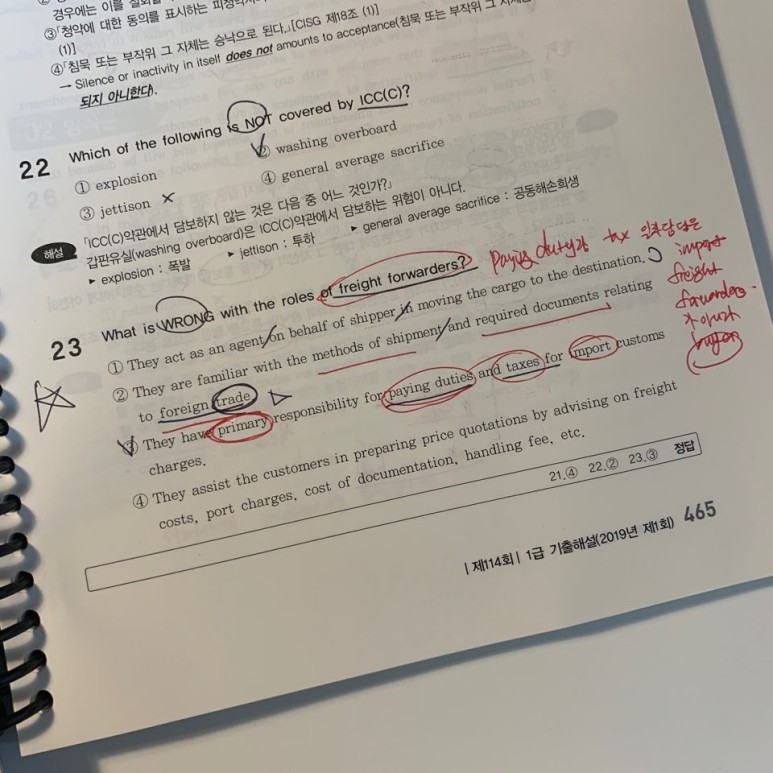 경우에는 이를
③「청약에 대한 동의를 표시하는
(1)]
④「침묵 또는 부작위 그 자체는 승낙으로 된다.」[CISG 제18조 (1)]
→ Silence or inactivity in itself does not amounts to acceptance(침묵 또는 부작위
되지 아니한다).
22 Which of the following is NOT covered by ICC(C)?
① explosion ② washing overboard
③ jettison × ④ general average sacrifice
해설 「ICC(C)약관에서 담보하지 않는 것은 다음 중 어느 것인가?」
갑판유실(washing overboard)은 ICC(C)약관에서 담보하는 위험이 아니다.
▸ explosion : 폭발 ▸ jettison : 투하 ▸ general average sacrifice : 공동해손희생
23 What is WRONG with the roles of freight forwarders?
paying duty와 tax 일차담당은
import
freight
forwarders
가 아니라
buyer
① They act as an agent on behalf of shipper in moving the cargo to the destination.
② They are familiar with the methods of shipment and required documents relating
to foreign trade
③ They have primary responsibility for paying duties and taxes for import customs
charges.
④ They assist the customers in preparing price quotations by advising on freight
costs, port charges, cost of documentation, handling fee, etc.
21.④ 22.② 23.③ 정답
| 제114회 | 1급 기출해설(2019년 제1회) 465